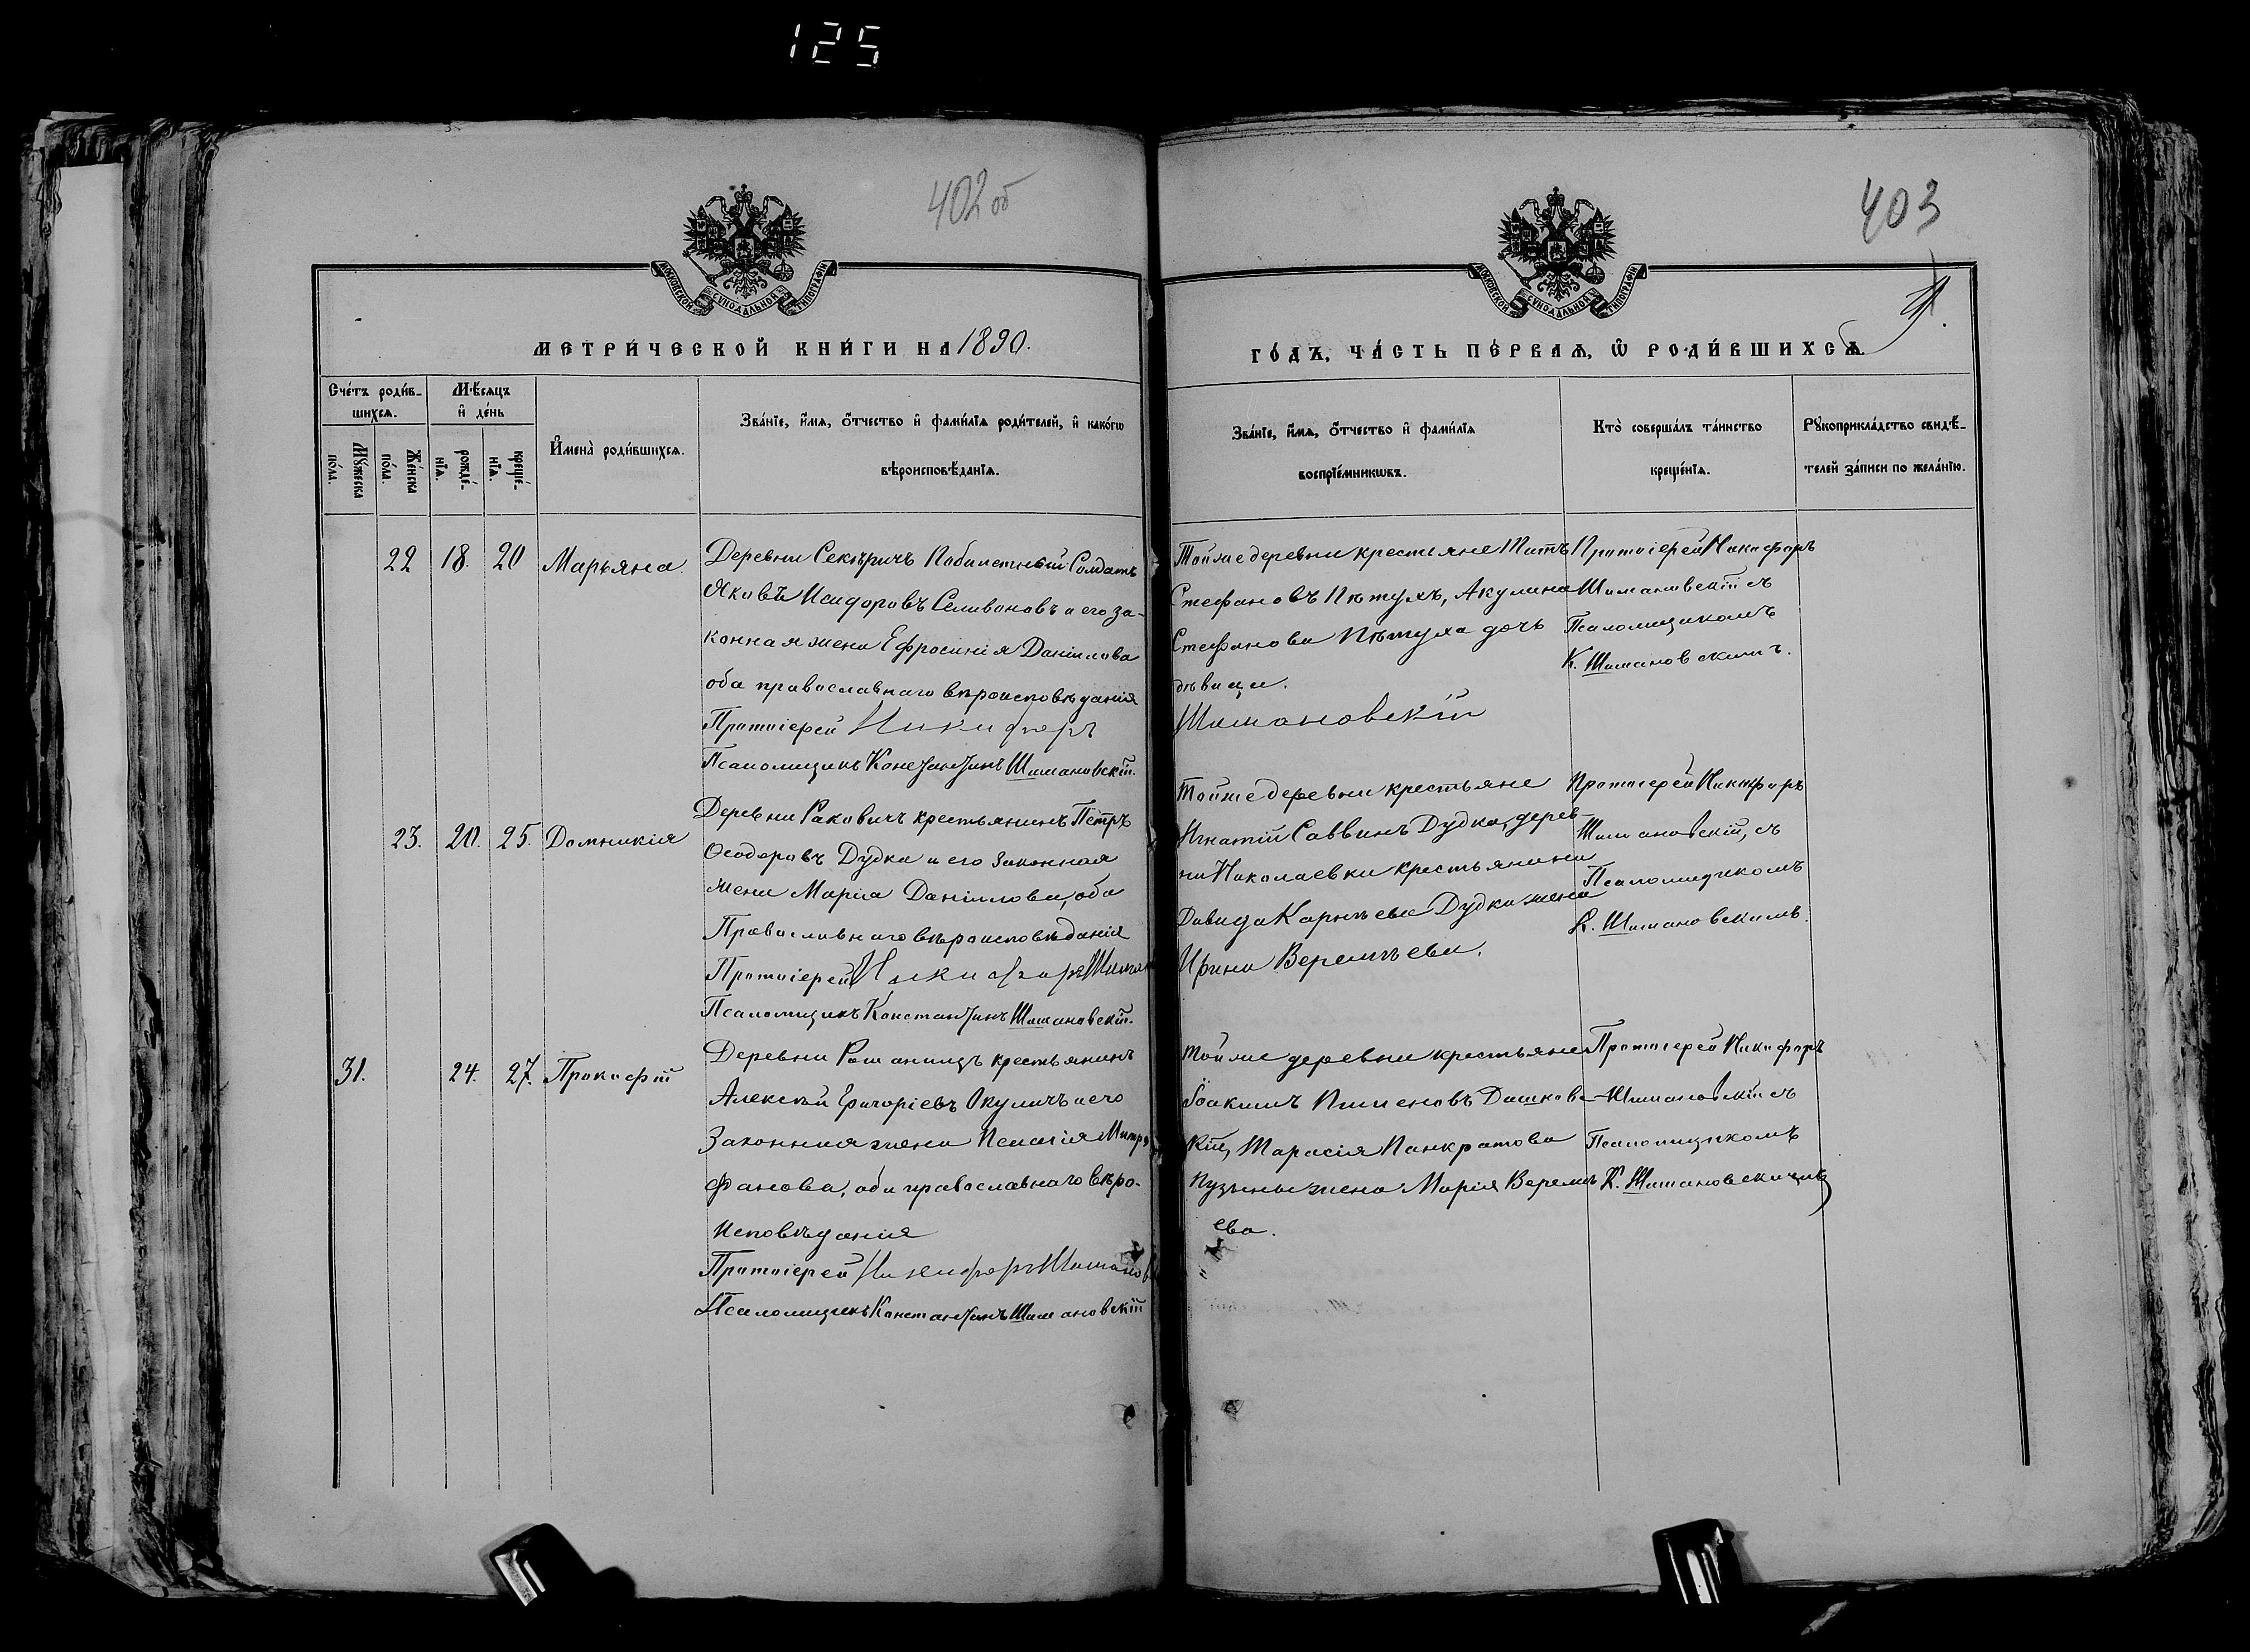 125
402 об
403
МОСКОВСКОЙ СѴНОДАЛЬНОЙ ТИПОГРАФІИ
МОСКОВСКОЙ СѴНОДАЛЬНОЙ ТИПОГРАФІИ
МЕТРИ́ЧЕСКОЙ КНИ́ГИ НА 1890.
ГО́ДЪ, ЧА́СТЬ ПЕ́РВАѦ, Ѡ҆ РОДИ́ВШИХСѦ.
Сче́тъ роди́в-
шихсѧ.
Мꙋ́жеска по́ла.
Же́нска по́ла.
Мѣ́сѧцъ
и҆ де́нь
рожде́-
нїѧ.
креще́-
нїѧ.
И҆мена̀ роди́вшихсѧ.
Зва́нїе, и҆́мѧ, ѻ҆́тчество и҆ фами́лїѧ роди́телей, и҆ како́гѡ
вѣроисповѣ́данїѧ.
Зва́нїе, и҆́мѧ, ѻ҆́тчество и҆ фами́лїѧ
воспрїе́мникѡвъ.
Кто̀ соверша́лъ та́инство
креще́нїѧ.
Рꙋкоприкла́дство свидѣ́-
телей за́писи по жела́нїю.
22 18. 20 Марьяна.
Деревни Секѣричъ Побилетный Солдатъ
Яковъ Исидоровъ Селивоновъ и его за-
конная жена Ефросинія Даніилова
оба православнаго вѣроисповѣданія
Протоіерей Никифоръ
Псаломщикъ Константинъ Шимановскій.
Тойже деревни крестьяне Титъ
Стефановъ Пѣтухъ, Акулина
Стефанова Пѣтуха дочь
дѣвица.
Шимановскій
Протоіерей Никифоръ
Шимановскій съ
Псаломщикомъ
К. Шимановскимъ.
23. 20. 25. Домникія
Деревни Раковичъ крестьянинъ Петръ
Ѳеодоровъ Дудка и его законная
жена Марія Даніилова, оба
Православнаго вѣроисповѣданія
Протоіерей Никифоръ Шиман
Псаломщикъ Константинъ Шимановскій.
Тойже деревни крестьяне
Игнатій Саввинъ Дудка, дерев-
ни Николаевки крестьянина
Давида Карпѣева Дудки жена
Ирина Веремѣева.
Протоіерей Никифоръ
Шимановскій, съ
Псаломщикомъ
К. Шимановскимъ.
31. 24. 27. Прокофій
Деревни Рошанищъ крестьянинъ
Алексѣй Григоріевъ Окуличъ и его
Законная жена Пелагія Митро
фанова, оба православнаго вѣро-
исповѣданія
Протоіерей Никифоръ Шиманов
Псаломщикъ Константинъ Шимановскій
Тойже деревни крестьяне
Іоакимъ Пименовъ Дашков-
кій, Тарасія Панкратова
Пузыны жена Марія Веремѣ
ева.
Протоіерей Никифоръ
Шимановскій съ
Псаломщикомъ
К. Шимановскимъ